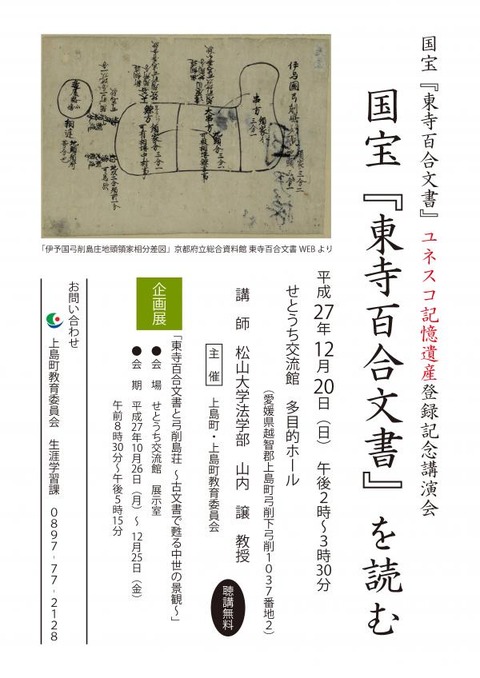 国宝『東寺百合文書』ユネスコ記憶遺産登録記念講演会
国宝『東寺百合文書』を読む
「伊予国弓削島庄地頭領家相分差図」京都府立総合資料館 東寺百合文書 WEB より
平成27年12月20日（日）　午後2時～3時30分
せとうち交流館　多目的ホール
（愛媛県越智郡上島町弓削下弓削1037番地2）
講　師　松山大学法学部　山内　譲　教授
聴講無料
主 催　上島町・上島町教育委員会
企画展
「東寺百合文書と弓削島荘 ～古文書で甦る中世の景観～」
● 会　場　せとうち交流館　展示室
● 会　期　平成27年10月26日（月）～ 12月25日（金）
午前8時30分～午後5時15分
お問い合わせ
上島町教育委員会　生涯学習課　0897‐77‐2128